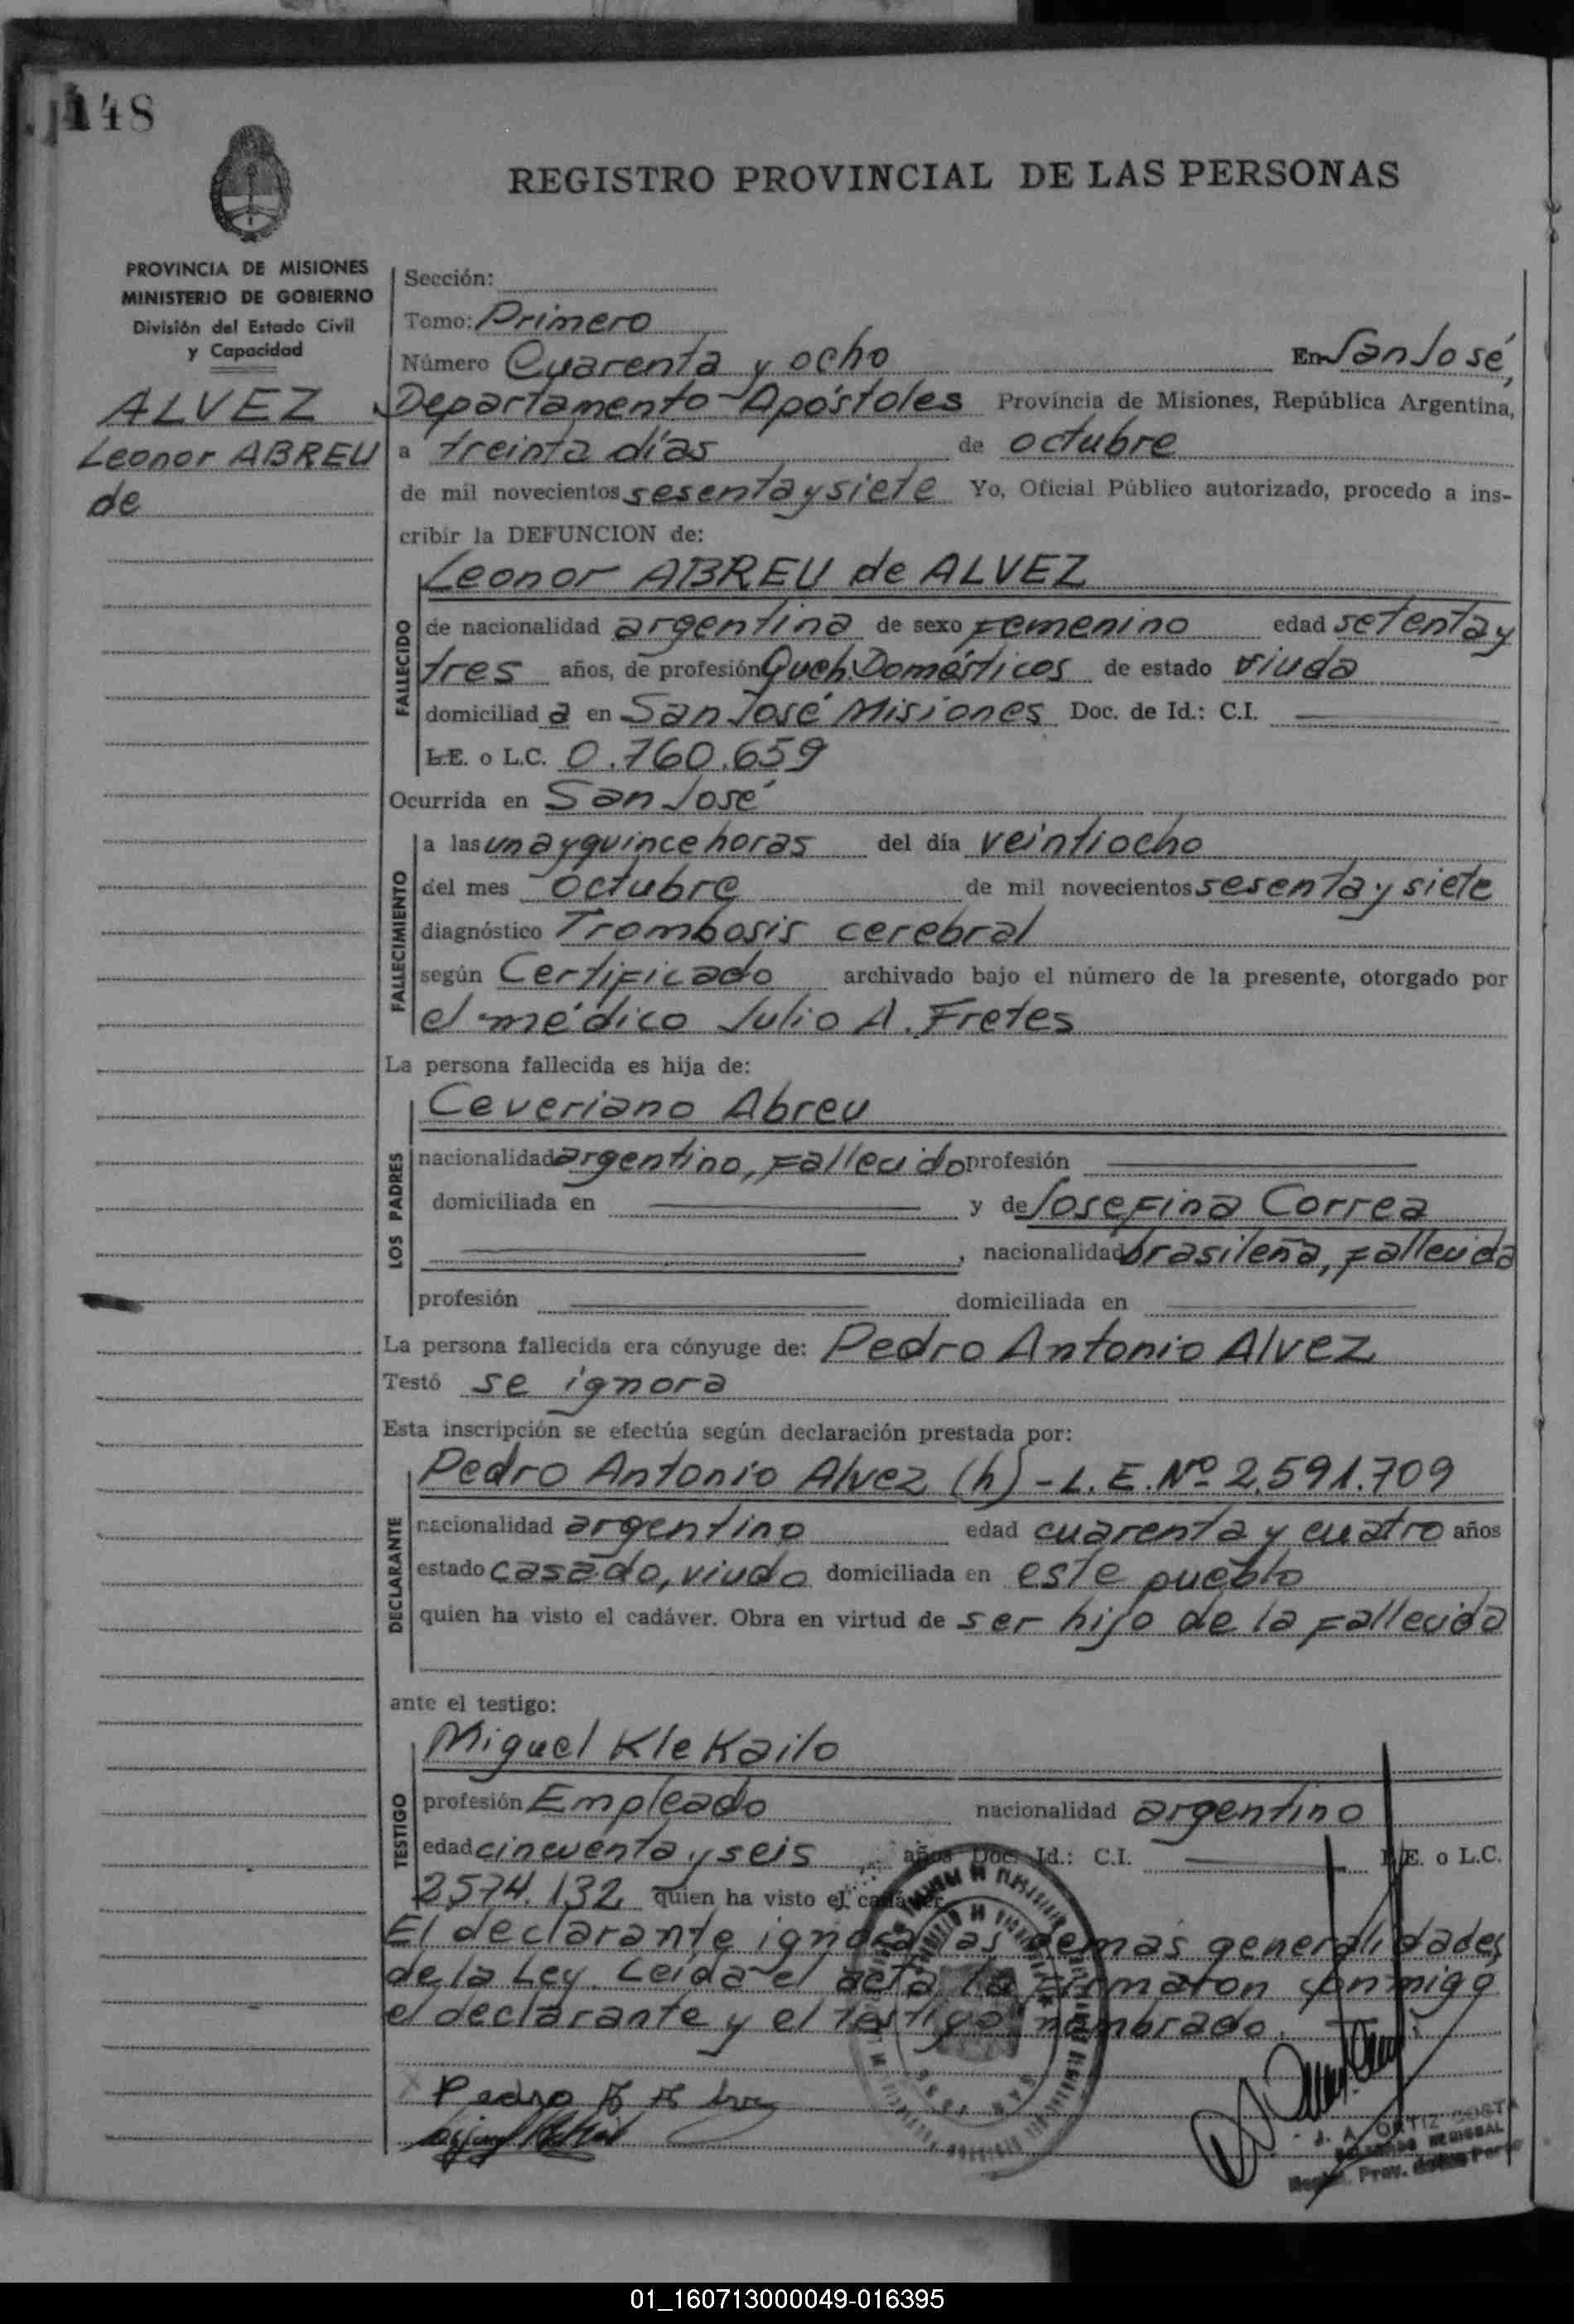 148
REGISTRO PROVINCIAL DE LAS PERSONAS
PROVINCIA DE MISIONES
MINISTERIO DE GOBIERNO
División del Estado Civil
y Capacidad
ALVEZ
Leonor ABREU
de
Sección:
Tomo: Primero
Número Cuarenta y ocho En San José,
Departamento Apóstoles Provincia de Misiones, República Argentina,
a treinta días de octubre
de mil novecientos sesenta y siete Yo, Oficial Público autorizado, procedo a ins-
cribir la DEFUNCION de:
Leonor ABREU de ALVEZ
FALLECIDO
de nacionalidad argentina de sexo Femenino edad setenta y
tres años, de profesión Queh. Domésticos de estado viuda
domiciliad a en San José Misiones Doc. de Id.: C.I.
L.E. o L.C. 0.760.659
Ocurrida en San José
FALLECIMIENTO
a las una y quince horas del día veintiocho
del mes octubre de mil novecientos sesenta y siete
diagnóstico Trombosis cerebral
según Certificado archivado bajo el número de la presente, otorgado por
el médico Julio A. Fretes
La persona fallecida es hija de:
LOS PADRES
Ceveriano Abreu
nacionalidad argentino, Fallecido profesión
domiciliada en y de Josefina Correa
, nacionalidad brasileña, fallecida
profesión domiciliada en
La persona fallecida era cónyuge de: Pedro Antonio Alvez
Testó se ignora
Esta inscripción se efectúa según declaración prestada por:
DECLARANTE
Pedro Antonio Alvez (h) - L.E. Nº 2.591.709
nacionalidad argentino edad cuarenta y cuatro años
estado casado, viudo domiciliada en este pueblo
quien ha visto el cadáver. Obra en virtud de ser hijo de la Fallecida
ante el testigo:
TESTIGO
Miguel KleKailo
profesión Empleado nacionalidad argentino
edad cincuenta y seis años Doc. Id.: C.I. L.E. o L.C.
2.574.132 quien ha visto el cadáver
El declarante ignora las demás generalidades
de la Ley. Leída el acta la firmaron conmigo
el declarante y el testigo nombrado.
Pedro
J. A. ORTIZ COSTA
DELEGADO REGIONAL
Prov.
01_160713000049-016395